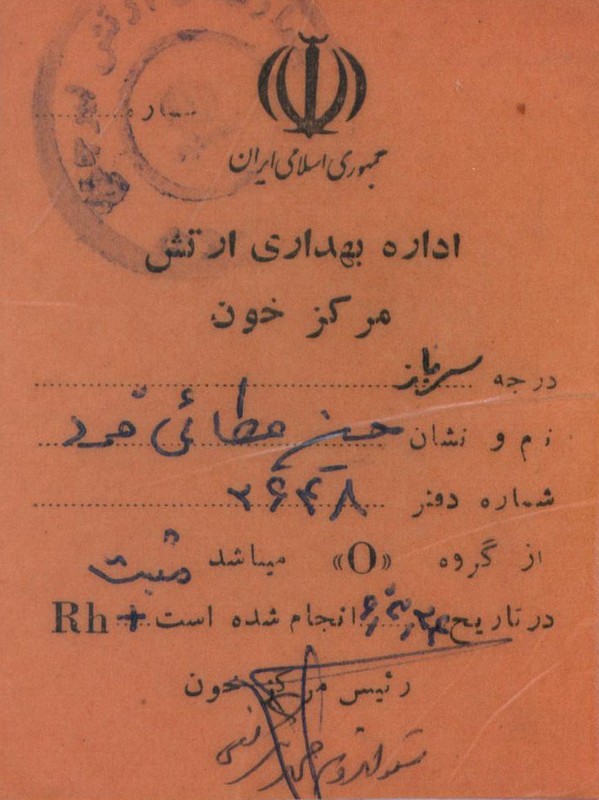 شماره
جمهوری اسلامی ایران
اداره بهداری ارتش
مرکز خون
درجه سرباز
نام و نشان حسن عطائی فرد
شماره دفتر ۲۶۴۸
از گروه «O» میباشد مثبت
در تاریخ انجام شده است + Rh
رئیس مرکز خون